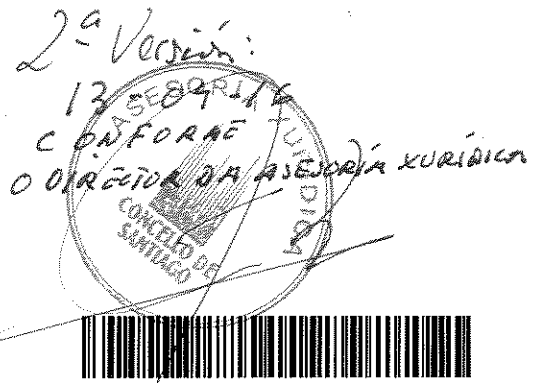 2ª Versión:
13-09-16
CONFORME
O DIRECTOR DA ASESORÍA XURÍDICA
ASESORIA XURIDICA
CONCELLO DE
SANTIAGO